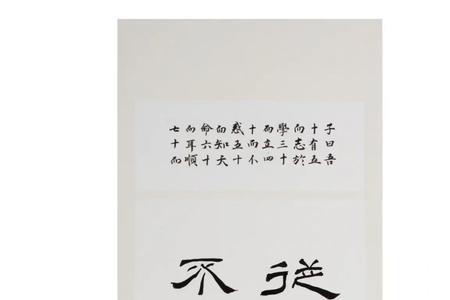 子曰吾
十有五
而志於
學三十
而立四
十而不
惑五十
而知天
命六十
而耳順
七十而
從
不